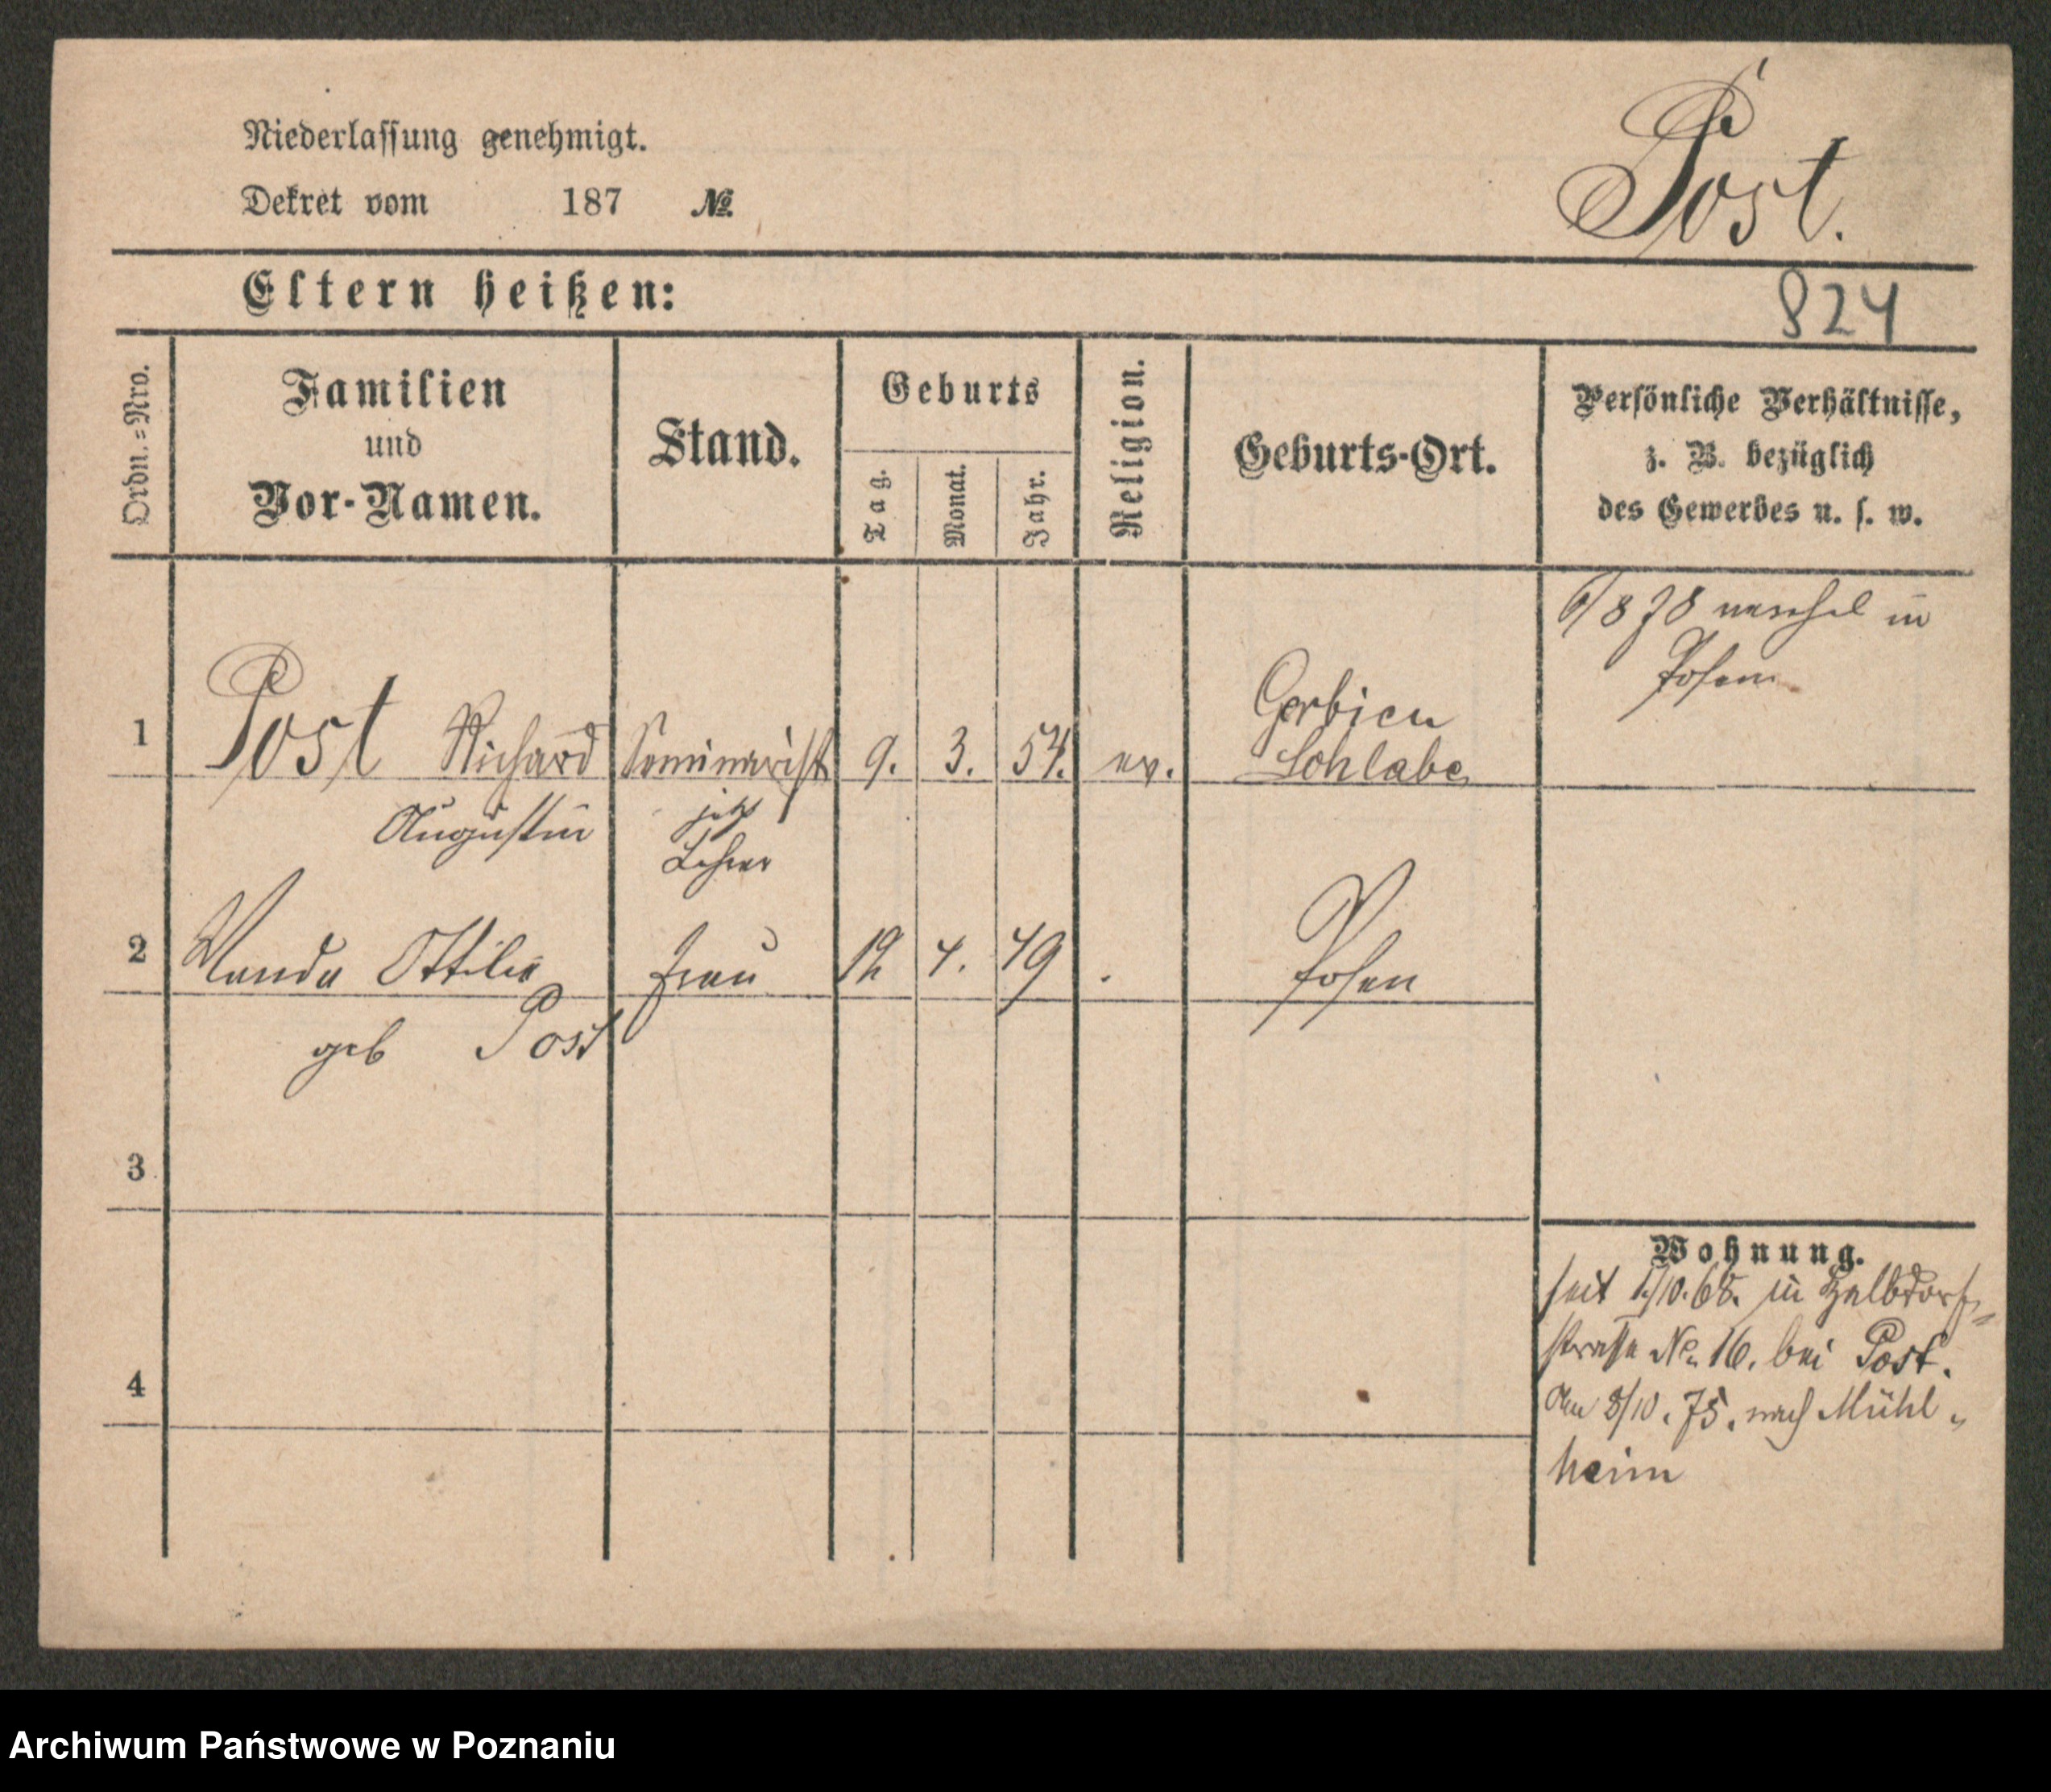 Niederlassung genehmigt.
Dekret vom 187 №
Post.
Eltern heißen:
824
Ordn.=Nro.
Familien
und
Vor-Namen.
Stand.
Geburts
Tag.
Monat.
Jahr.
Religion.
Geburts-Ort.
Persönliche Verhältnisse,
z. B. bezüglich
des Gewerbes u. s. w.
6/878 in
Posen
1 Post Richard Seminarist 9. 3. 54. ev. Gerbien
Lohlabe
Augustin jetzt
Lehrer
2 Wanda Ottilie Frau 12 4. 49 . Posen
geb Post
3
4
Wohnung.
seit 1/10.68. in Halbdorf=
straße No 16. bei Post.
Am 8/10. 75. nach Mühl=
heim
Archiwum Państwowe w Poznaniu